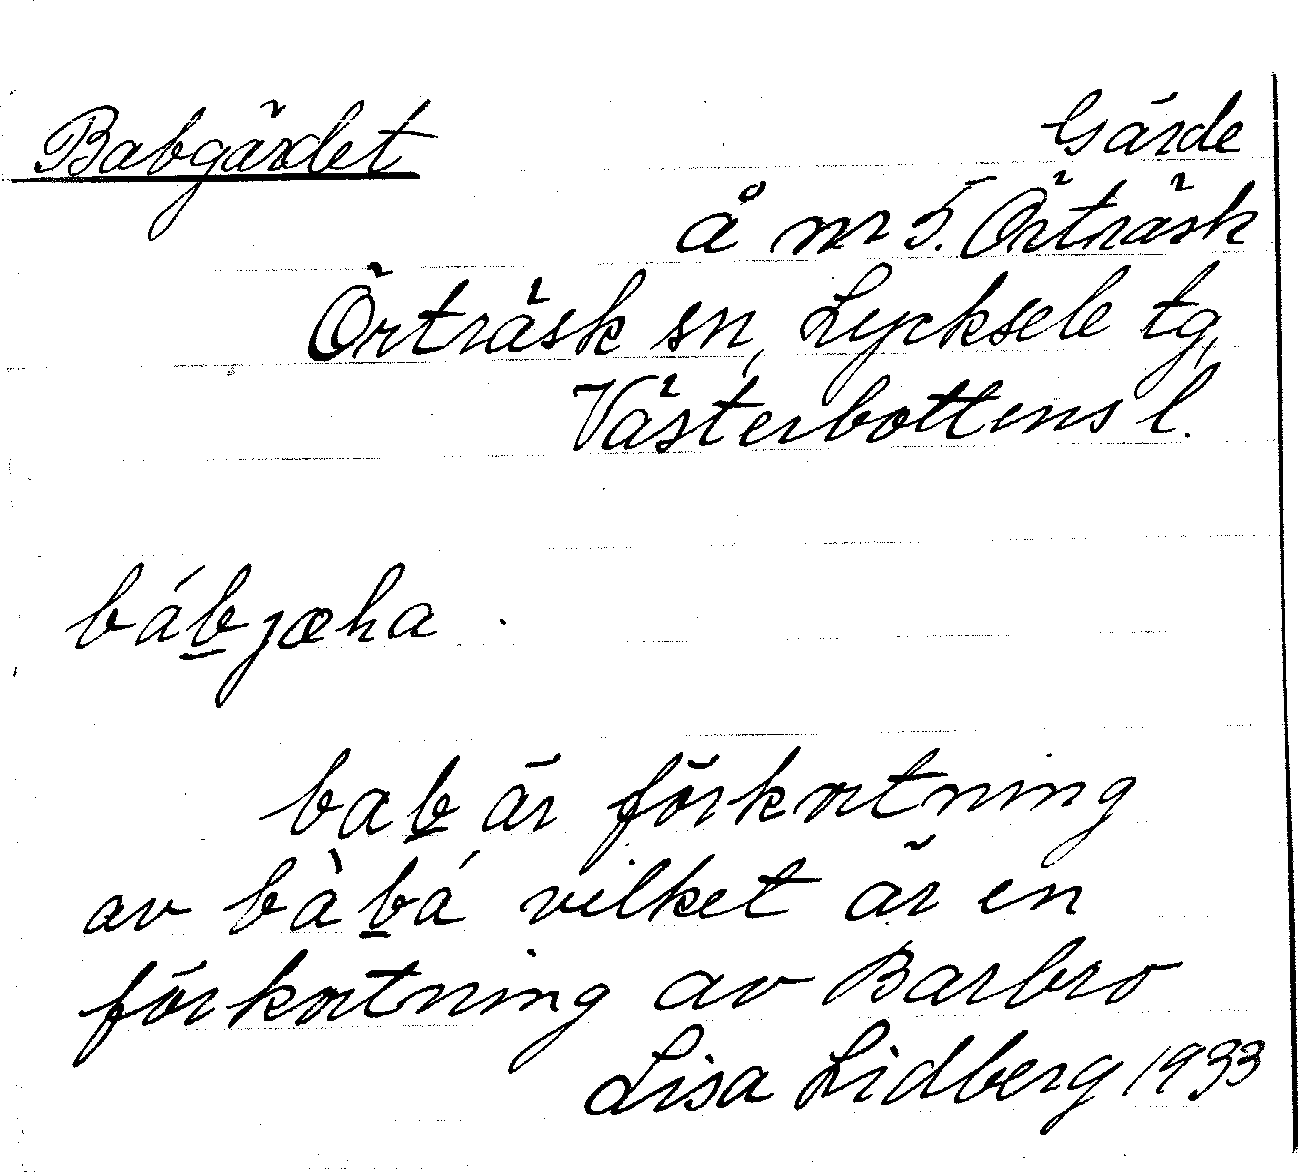 Babgärdet
Gärde
å nr 5. Örträsk
Örträsk sn, Lycksele tg,
Västerbottens l.
báb̲jæha
bab̲ är förkortning
av bàb̲á vilket är en
förkortning av Barbro
Lisa Lidberg 1933